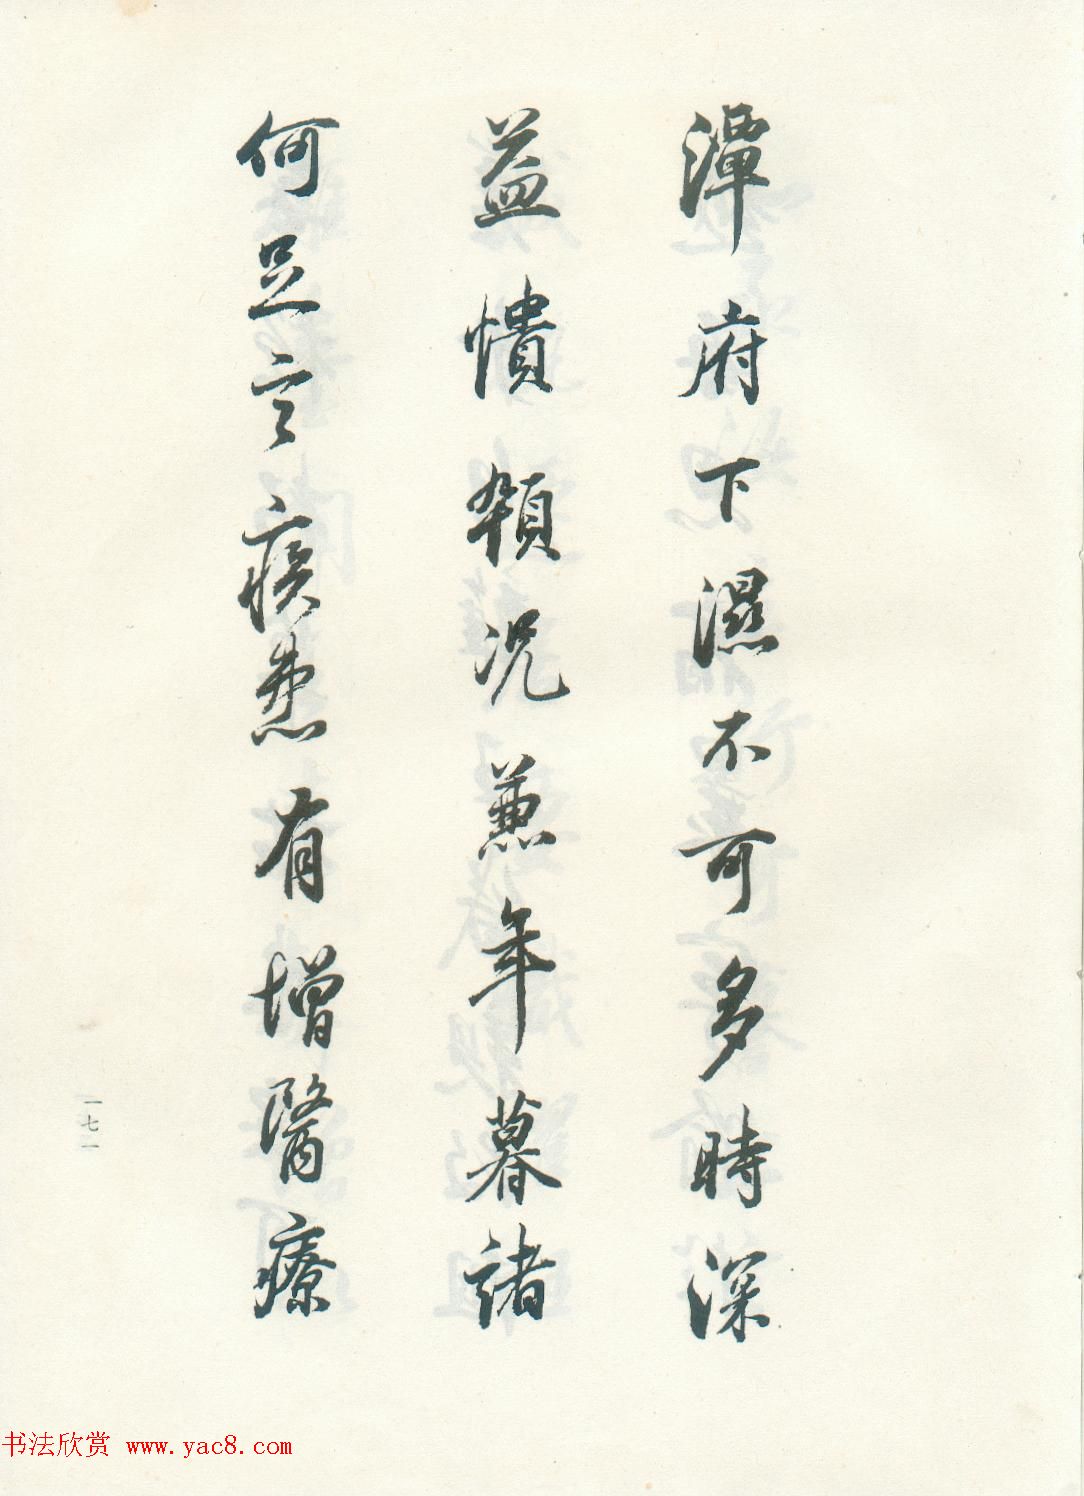 潭府下濕不可多時深
益憒頓況兼年暮諸
何足言疾患有增醫療
一七一
书法欣赏 www.yac8.com